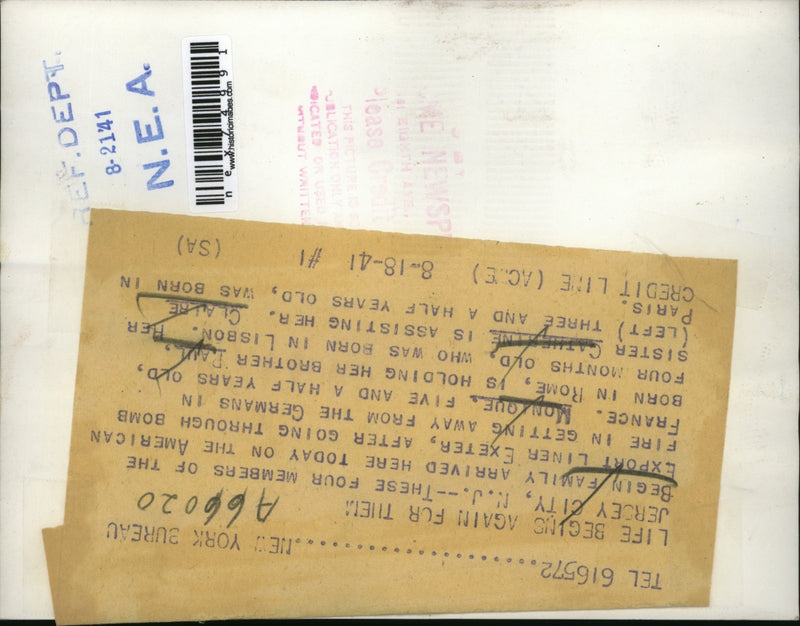 REF. DEPT.
8-2141
N.E.A.
www.historicimages.com
nex74991
ME NEWSP
Please Credit
THIS PICTURE IS
PUBLICATION ONLY
OR USED
WITHOUT WRITTEN
TEL 616572......................NEW YORK BUREAU
A66020
LIFE BEGINS AGAIN FOR THEM
JERSEY CITY, N.J.--THESE FOUR MEMBERS OF THE
BEGIN FAMILY ARRIVED HERE TODAY ON THE AMERICAN
EXPORT LINER EXETER, AFTER GOING THROUGH BOMB
FIRE IN GETTING AWAY FROM THE GERMANS IN
FRANCE. MONIQUE, FIVE AND A HALF YEARS OLD,
BORN IN ROME, IS HOLDING HER BROTHER PAUL,
FOUR MONTHS OLD, WHO WAS BORN IN LISBON. HER
SISTER CATHERINE IS ASSISTING HER. CLAIRE
(LEFT) THREE AND A HALF YEARS OLD, WAS BORN IN
PARIS.
CREDIT LINE (ACME) 8-18-41 #1 (SA)